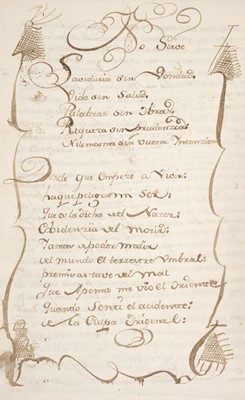 No Sirve
Saviduria sin Vondad
Vida sin Salud,
Palabras sin Obras,
Riqueza sin prudenzia
Ni limosna sin vuena Intenzion
Desde que empeze a Vivir
mi Ser,
Que es la dicha del Nazer
del Morir;
poder medir
el mundo el terrestre Umbral;
del Mal
que Apenas me vio el Oriente
Quando Senti el acidente
de la Culpa Original;